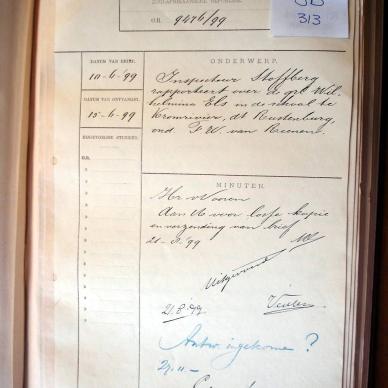 ZUID-AFRIKAANSCHE REPUBLIEK.
O.R. 9476/99
313
DATUM VAN BRIEF.
10-6-'99
DATUM VAN ONTVANGST.
15-6-99
BIJGEVOEGDE STUKKEN.
O.R.
ONDERWERP.
Inspecteur Stoffberg
rapporteert over de
helmina Els in de school te
Kromrivier, dt Rustenburg,
ond. F. W. van Reenen.
MINUTEN.
Hr v Vooren
Aan U voor losse kopie
en verzending van brief
'99
Uitgevoerd
21.8.99
Antw. ingekomen?
29.11-